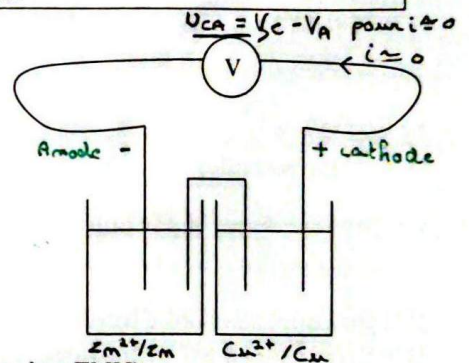 U_CA = V_C - V_A pour i ≃ 0
i ≃ 0
V
Anode - + cathode
Zn²⁺/Zn Cu²⁺/Cu